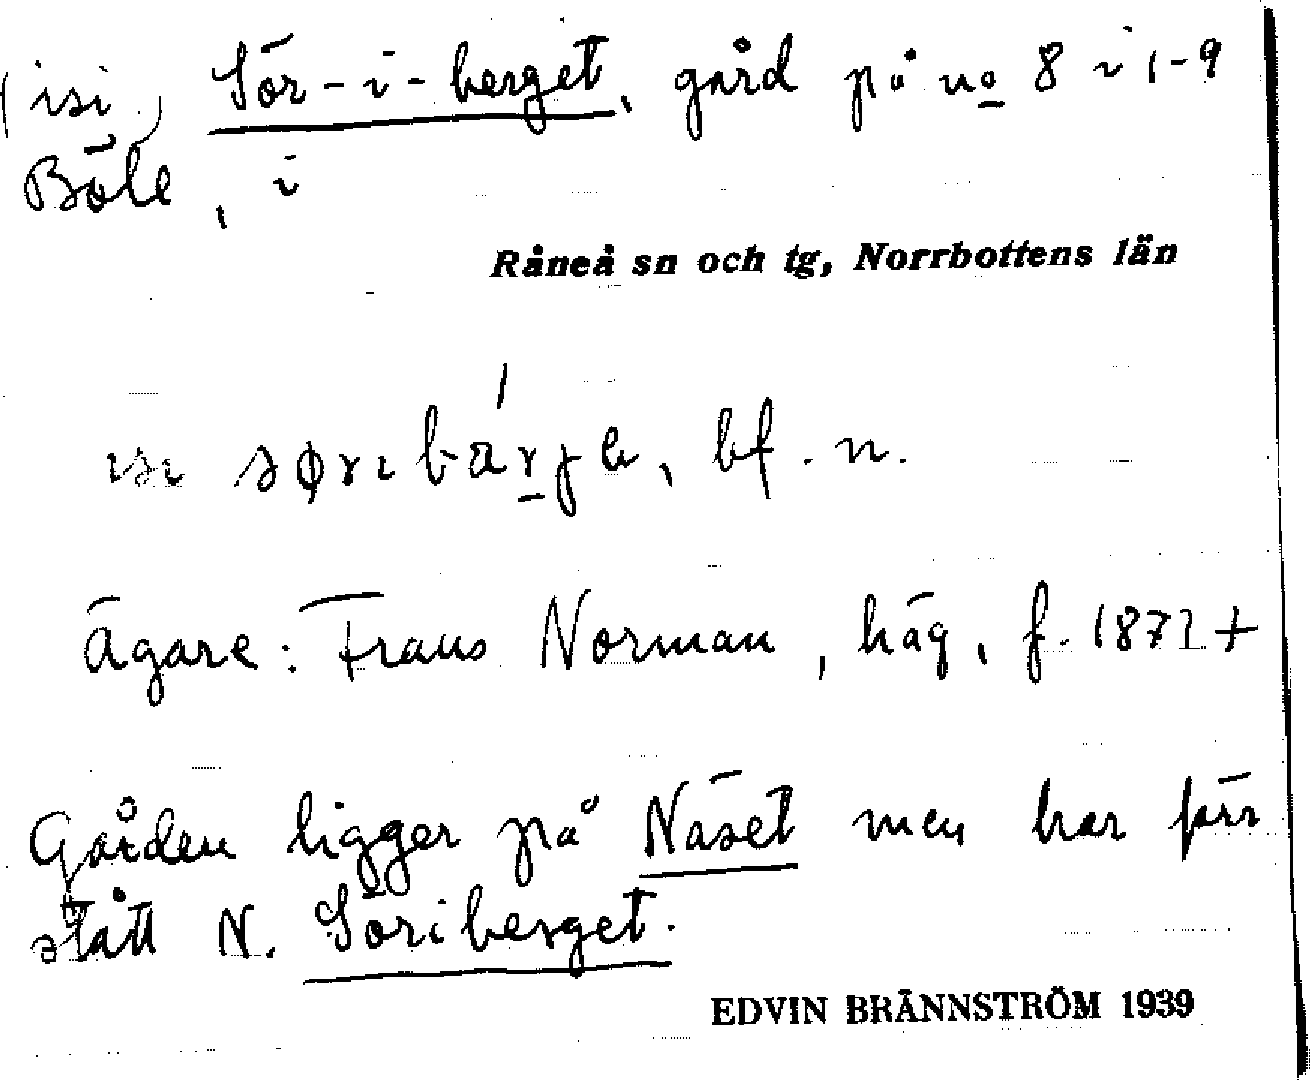 (isi) Sör-i-berget, gård på no 8 i 1-9
Böle, i
Råneå sn och tg, Norrbottens län
bf. n.
Ägare: Frans Norman, häg, f. 1872 +
Gården ligger på Näset men har förr
stått N. Söriberget.
EDVIN BRÄNNSTRÖM 1939